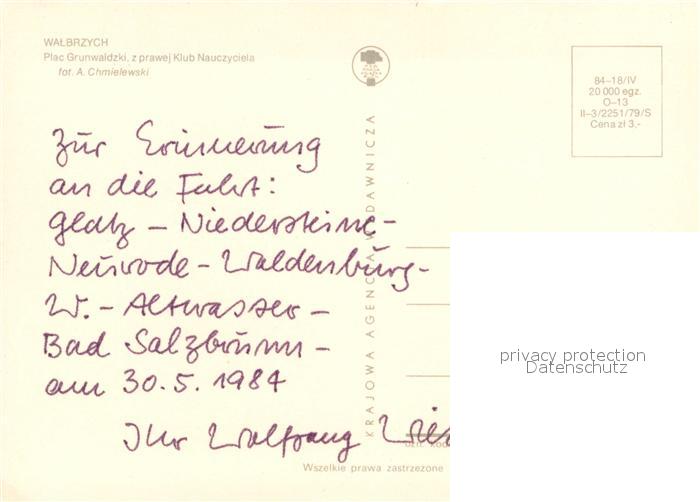 WAŁBRZYCH
Plac Grunwaldzki, z prawej Klub Nauczyciela
fot. A. Chmielewski
84–18/IV
20 000 egz.
O–13
II–3/2251/79/S
Cena zł 3,-
Zur Erinnerung
an die Fahrt:
Glatz – Niedersteine –
Neurode – Waldenburg –
W. – Altwasser –
Bad Salzbrunn –
am 30.5.1984
Ihr Wolfgang
KRAJOWA AGENCJA WYDAWNICZA
privacy protection
Datenschutz
Wszelkie prawa zastrzeżone